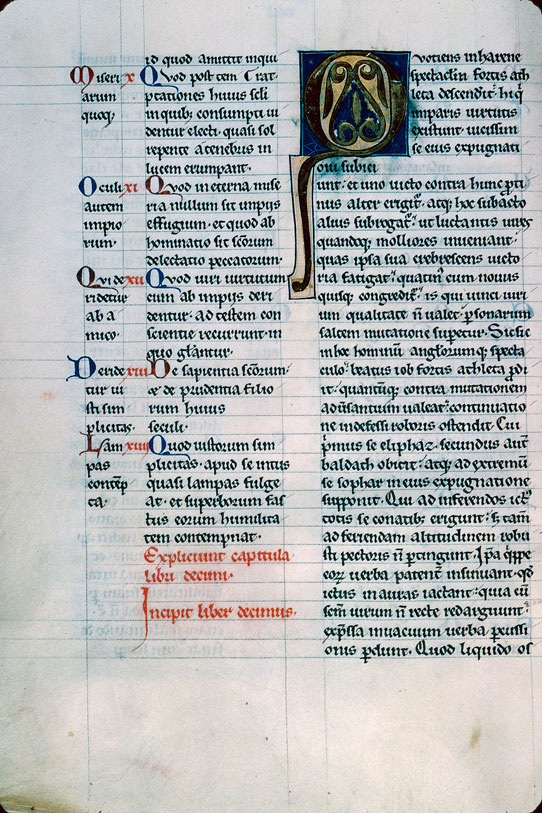 id quod amittit inqui
Miseri x Quod post tem crat
arum ptationes huius scli
quoq; in quib; consumpti ui
dentur electi quasi sol
repente a tenebris in
lucem erumpant.
Oculi xi Quod in eterna mise
autem ria nullum sit impijs
impio effugium. et quod ab
rum. hominatio sit scorum
delectatio peccatorum.
Qui de xii Quod uiri uirtutum
ridetur cum ab impijs deri
ab a dentur. ad testem con
mico. scientie recurrunt. in
quo glantur.
Deride xiii De sapientia scorum.
tur ui & de prudentia filio
sti sim rum huius
plicitas. seculi.
Lam xiiii Quod iustorum sim
pas plicitas. apud se intus
contep quasi lampas fulge
ta. at. et superborum fas
tus eorum humilita
tem contempnat.
Expliciunt capitula
libri decimi.
Incipit liber decimus.
Quotiens in harene
spectaclm fortis ath
leta descendit. hi q
imparis uirtutis
existunt uicissim
se eius expugnati
oni subici
unt. et uno uicto contra hunc pti
nus alter erigit. atq; hoc subacto
alius subrogat. ut luctantis uires
quandoq; molliores inueniant.
quas ipsa sua crebrescens uicto
ria fatigat. quatin cum nouus
quisq; congredit. is qui uinci uiri
um qualitate n ualet. psonarum
saltem mutatione supetur. Sic sic
in hoc hominu anglorumq; specta
culo. beatus iob fortis athleta pdi
it. quantuq; contra mutationem
aduersantium ualeat. continuatio
ne indefessi roboris ostendit. Cui
pimus se eliphaz. secundus aut
baldach obicit. atq; ad extremu
se sophar in eius expugnatione
supponit. Qui ad inferendos ic
totis se conatib; erigunt. s; tam
ad feriendam altitudinem robu
sti pectoris n ptingunt. Ipa qppe
eor uerba patent insinuant. qd
ictus in auras iactant. quia cu
scm uirum n recte redarguunt.
expssa in uacuum uerba pcussi
onis pdunt. Quod liquido os